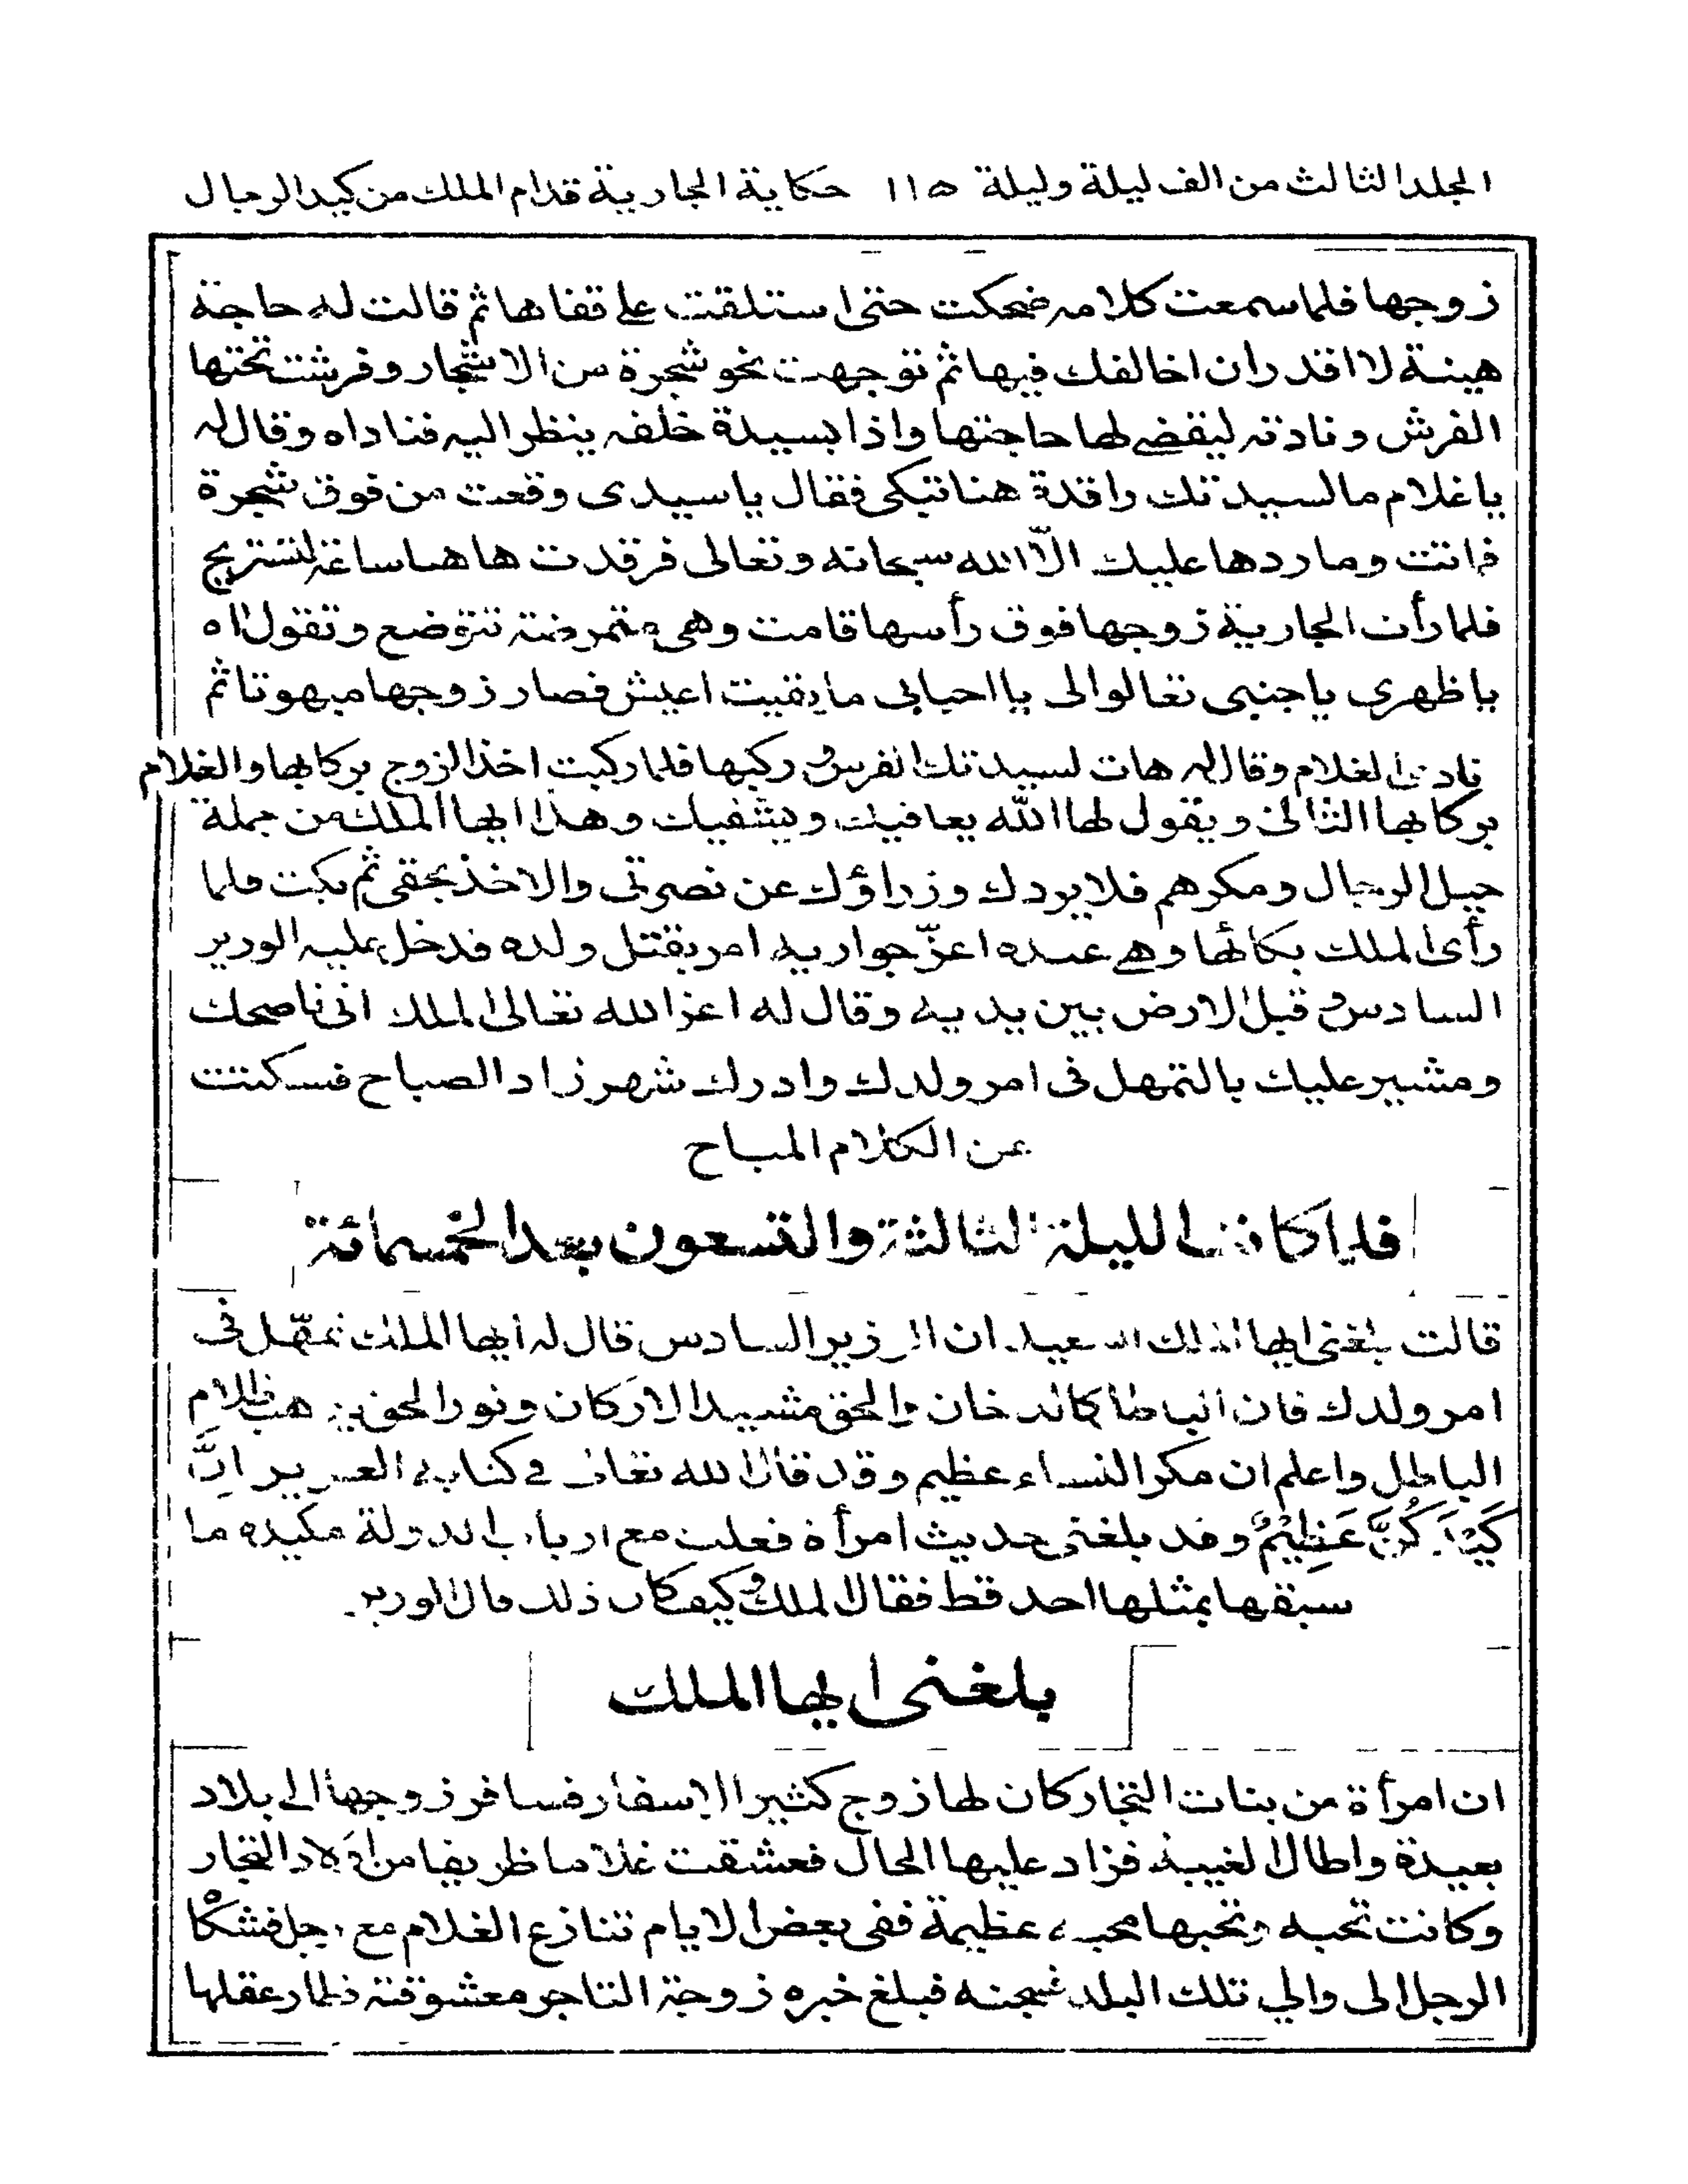 المجلد الثالث من الف ليلة وليلة ١١٥ حكاية الجارية قدام الملك من كيد الرجال
زوجها فلما سمعت كلامه ضحكت حتى استلقت على قفاها ثم قالت له حاجة
هينة لا اقدر ان اخالفك فيها ثم توجهت نحو شجرة من الاشجار وفرشت تحتها
الفرش ونادته ليقضى لها حاجتها واذا بسيدة خلفه ينظر اليه فناداه وقال له
يا غلام ما لسيدتك راقدة هنا تبكى فقال يا سيدى وقعت من فوق شجرة
فماتت وما ردها عليك الّا الله سبحانه وتعالى فرقدت هاهنا ساعة لتستريح
فلما رأت الجارية زوجها فوق رأسها قامت وهى متمرضة تتوضع وتقول اه
يا ظهرى يا جنبى تعالوا لى يا احبابى ما بقيت اعيش فصار زوجها مبهوتا ثم
نادى الغلام وقال له هات لسيدتك الفرس وركبها فلما ركبت اخذ الزوج بركابها والغلام
بركابها الثانى ويقول لها الله يعافيك ويشفيك وهذا ايها الملك من جملة
حيل الرجال ومكرهم فلا يردك وزراؤك عن نصرتى والاخذ بحقى ثم بكت فلما
رأى الملك بكائها وهى عنده اعزّ جواريه امر بقتل ولده فدخل عليه الوزير
السادس و قبل الارض بين يديه وقال له اعز الله تعالى الملك انى ناصحك
ومشير عليك بالتمهل فى امر ولدك وادرك شهر زاد الصباح فسكتت
عن الكلام المباح
فلما كانت الليلة الثالثة والتسعون بعد الخمسمائة
قالت بلغنى ايها الملك السعيد ان الوزير السادس قال له ايها الملك تمهّل فى
امر ولدك فان الباطل كالدخان والحق مشيد الاركان ونور الحق يذهب ظلام
الباطل واعلم ان مكر النساء عظيم وقد قال الله تعالى فى كتابه العزيز اِنَّ
كَيْدَ كُنَّ عَظِيْمٌ وقد بلغنى حديث امرأة فعلت مع ارباب الدولة مكيده ما
سبقها بمثلها احد قط فقال الملك وكيف كان ذلك قال الوزير
بلغنى ايها الملك
ان امرأة من بنات التجار كان لها زوج كثير الاسفار فسافر زوجها الى بلاد
بعيدة واطال الغيبة فزاد عليها الحال فعشقت غلاما ظريفا من اولاد التجار
وكانت تحبه وتحبها محبة عظيمة ففى بعض الايام تنازع الغلام مع رجل فشكاه
الرجل الى والي تلك البلد فسجنه فبلغ خبره زوجة التاجر معشوقته فطار عقلها